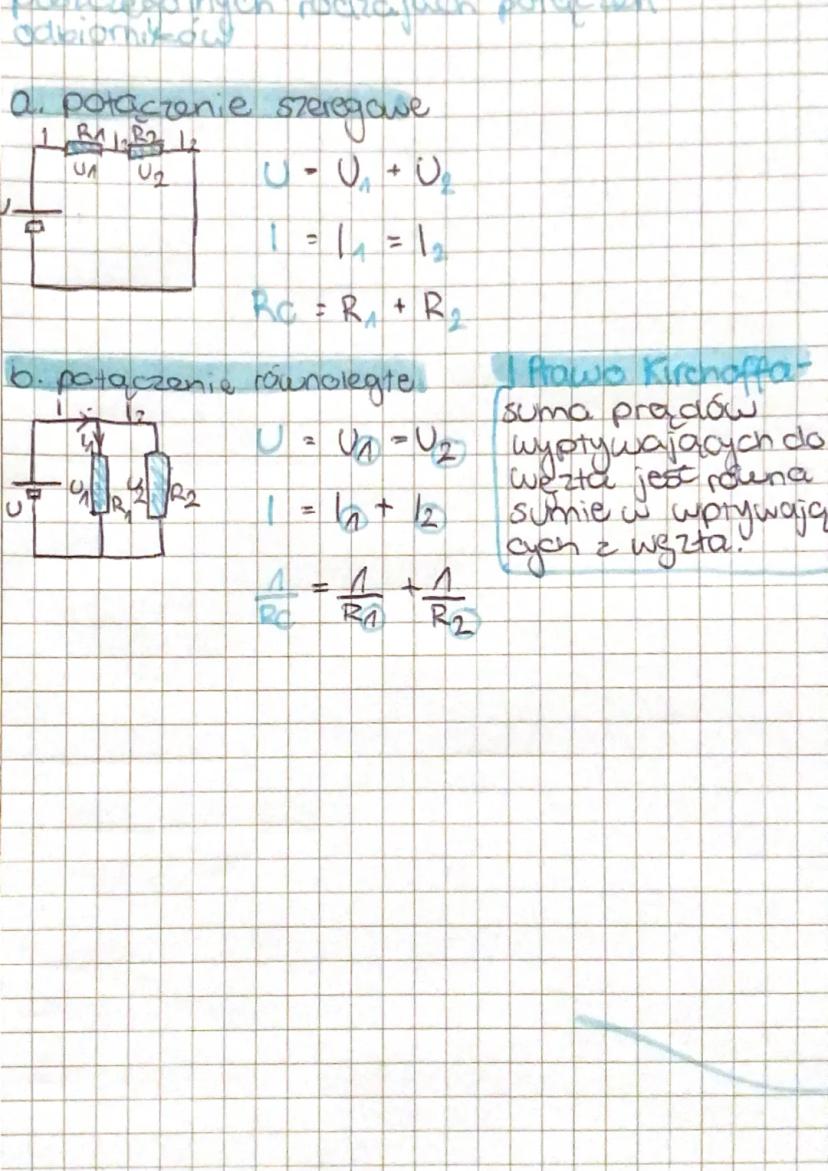 poszczególnych rodzajach połączeń
odbiorników
a. połączenie szeregowe
I R1 I1 R2 I2
U1 U2
U = U1 + U2
I = I1 = I2
Rc = R1 + R2
b. połączenie równoległe
I I2
I1
U U1 R1 U2 R2
U = U1 = U2
I = I1 + I2
1/Rc = 1/R1 + 1/R2
I Prawo Kirchoffa-
suma prądów
wypływających do
węzła jest równa
sumie w wpływają
cych z węzła.